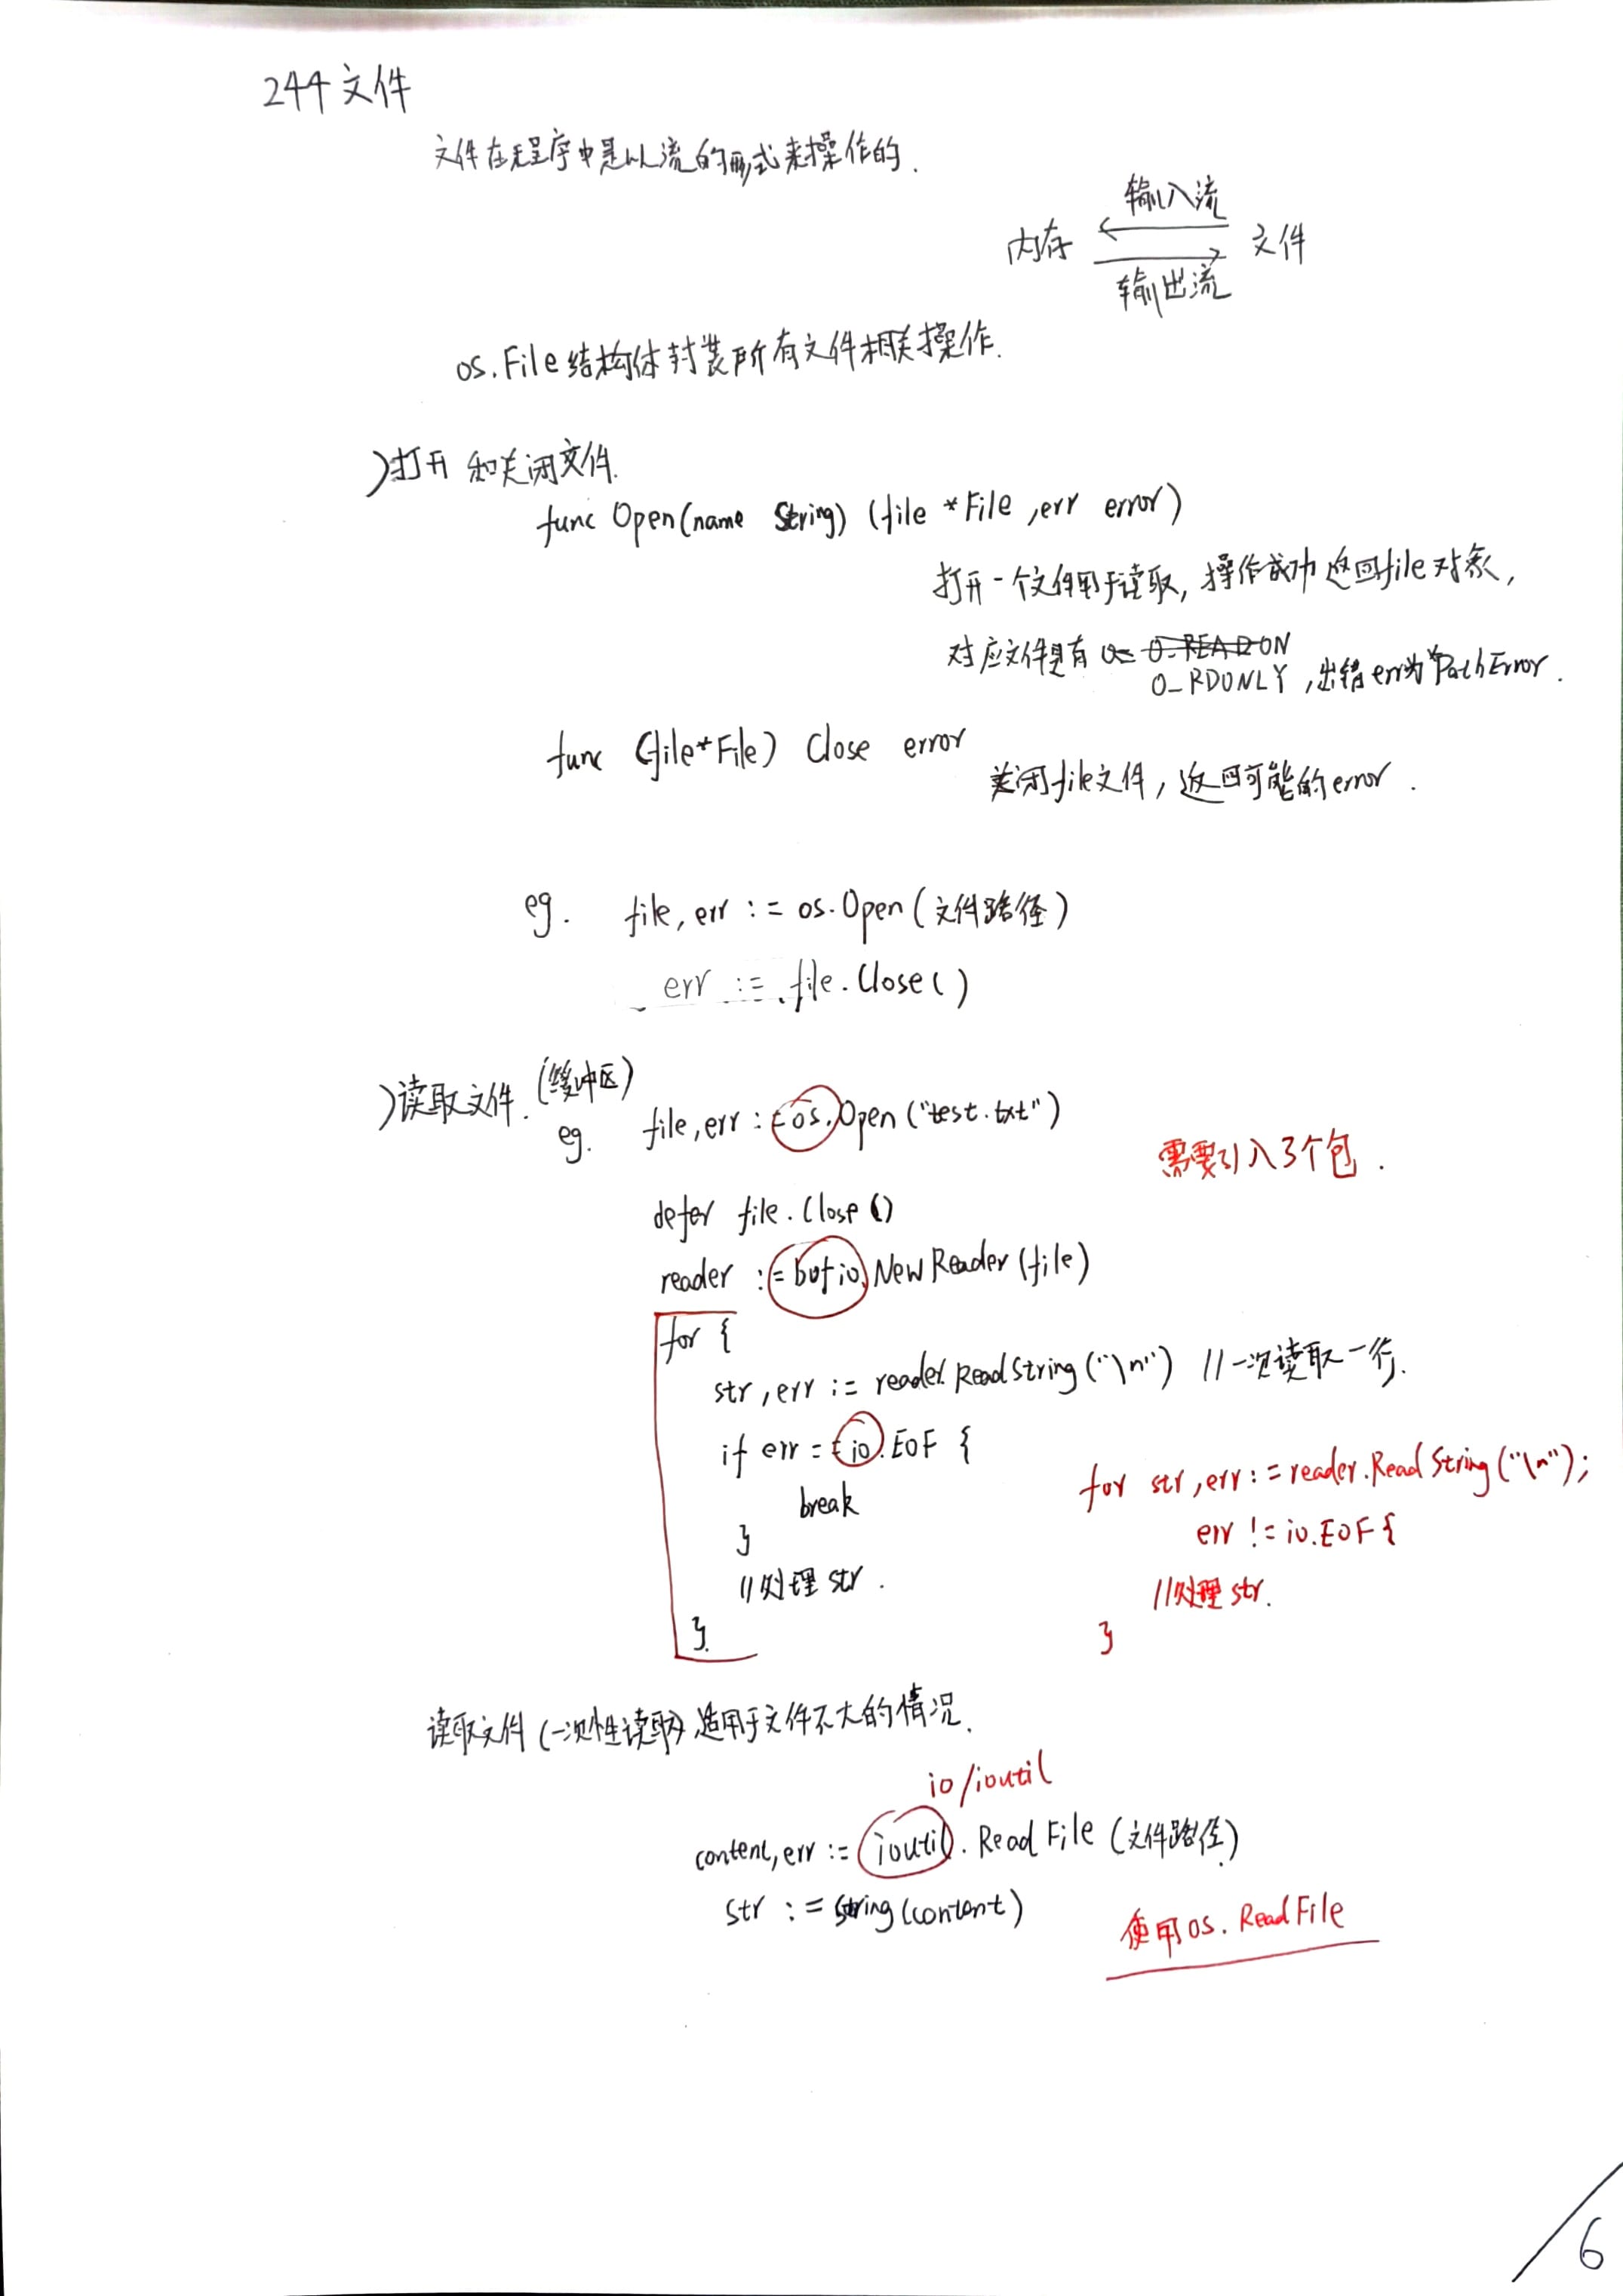 244 文件
文件在程序中是以流的形式来操作的.
输入流
内存 文件
输出流
os.File 结构体封装所有文件相关操作.
)打开和关闭文件.
func Open(name String) (file *File ,err error)
打开一个文件用于读取, 操作成功返回file对象,
对应文件具有 O_READON
O_RDONLY ,出错err为*PathError.
func (file*File) Close error
关闭file文件, 返回可能的error.
eg. file, err := os.Open(文件路径)
err := file.Close()
)读取文件.(缓冲区)
eg. file,err := os.Open ("test.txt")
需要引入3个包.
defer file.Close()
reader := bufio.NewReader(file)
for {
str,err := reader.ReadString("\n") //一次读取一行.
if err == io.EOF {
break
}
//处理 str.
}.
for str,err:=reader.ReadString("\n");
err != io.EOF {
//处理 str.
}
读取文件(一次性读取)适用于文件不大的情况.
io/ioutil
content,err := ioutil.ReadFile (文件路径)
str := string(content)
使用os.ReadFile
6